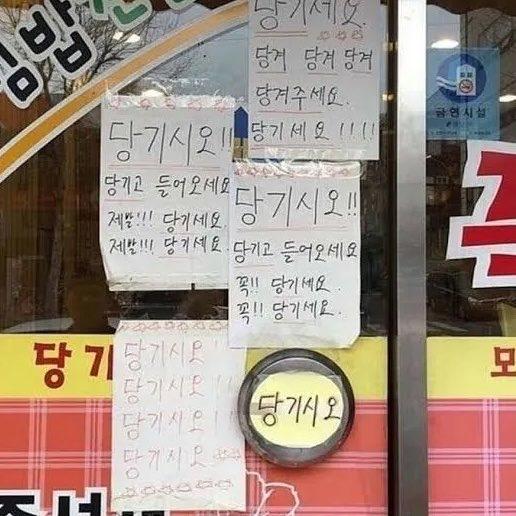 김밥
당기세요.
당겨 당겨 당겨
당겨주세요.
당기세요!!!!
금연시설
당기시오!!
당기고 들어오세요
제발!!! 당기세요.
제발!!! 당기세요.
당기시오!!
당기고 들어오세요
꼭!! 당기세요.
꼭!! 당기세요.
당기
당기시오!
당기시오!!
당기시오!!
당기시오
당기시오
모